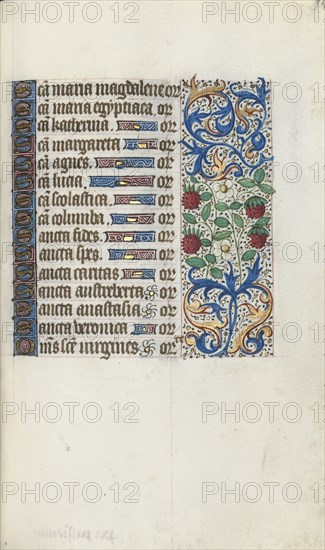 cã maria magdalene or
cã maria egyptiaca, or
cã katherina or
cã margareta or
cã agnes or
cã lucia or
cã scolastica or
cã columba or
ancta fides or
ancta spes or
ancta caritas or
ancta austreberta or
ancta anastasia or
ancta veronica or
Om̃s scẽ virgines or
PHOTO 12
PHOTO 12
PHOTO 12
PHOTO 12
PHOTO 12
PHOTO 12